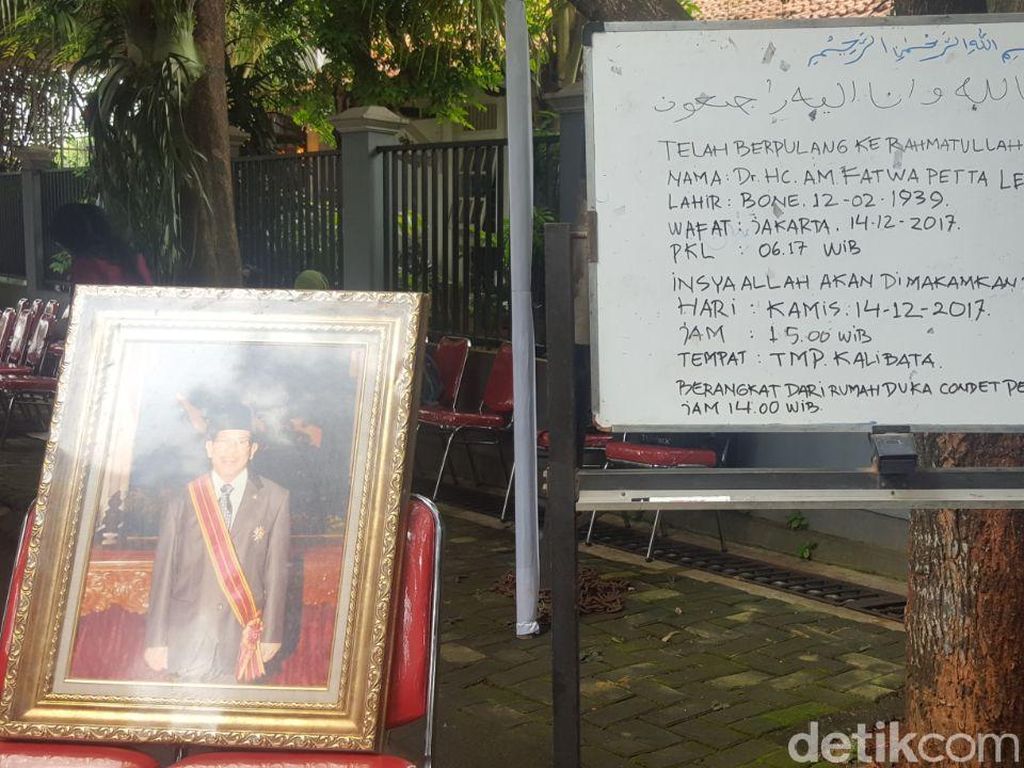 الله الرحمن الرحيم
لله وانا اليه راجعون
TELAH BERPULANG KE RAHMATULLAH
NAMA : Dr. HC. AM. FATWA PETTA LE
LAHIR : BONE. 12-02-1939.
WAFAT : JAKARTA. 14-12-2017.
PKL : 06.17 WIB
INSYA ALLAH AKAN DIMAKAMKAN
HARI : KAMIS. 14-12-2017.
JAM : 15.00 WIB
TEMPAT : TMP. KALIBATA.
BERANGKAT DARI RUMAH DUKA CONDET PE
JAM 14.00 WIB.
detikcom